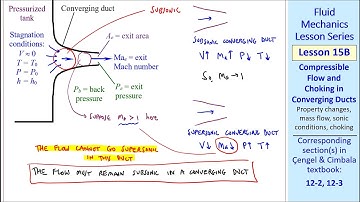 Pressurized
tank
Converging duct
SUBSONIC
Stagnation
conditions:
V ≈ 0
T = T₀
P = P₀
h = h₀
Aₑ = exit area
Maₑ = exit
Mach number
Pₑ = exit
pressure
P_b = back
pressure
SUPPOSE Maₑ > 1 here
SUBSONIC CONVERGING DUCT
V↑ Ma↑ P↓ T↓
So, Maₑ → 1
SUPERSONIC CONVERGING DUCT
V↓ Ma↓ P↑ T↑
THE FLOW CANNOT GO SUPERSONIC
IN THIS DUCT
THE FLOW MUST REMAIN SUBSONIC IN A CONVERGING DUCT
Fluid
Mechanics
Lesson Series
Lesson 15B
Compressible
Flow and
Choking in
Converging Ducts
Property changes,
mass flow, sonic
conditions, choking
Corresponding
section(s) in
Çengel & Cimbala
textbook:
12-2, 12-3